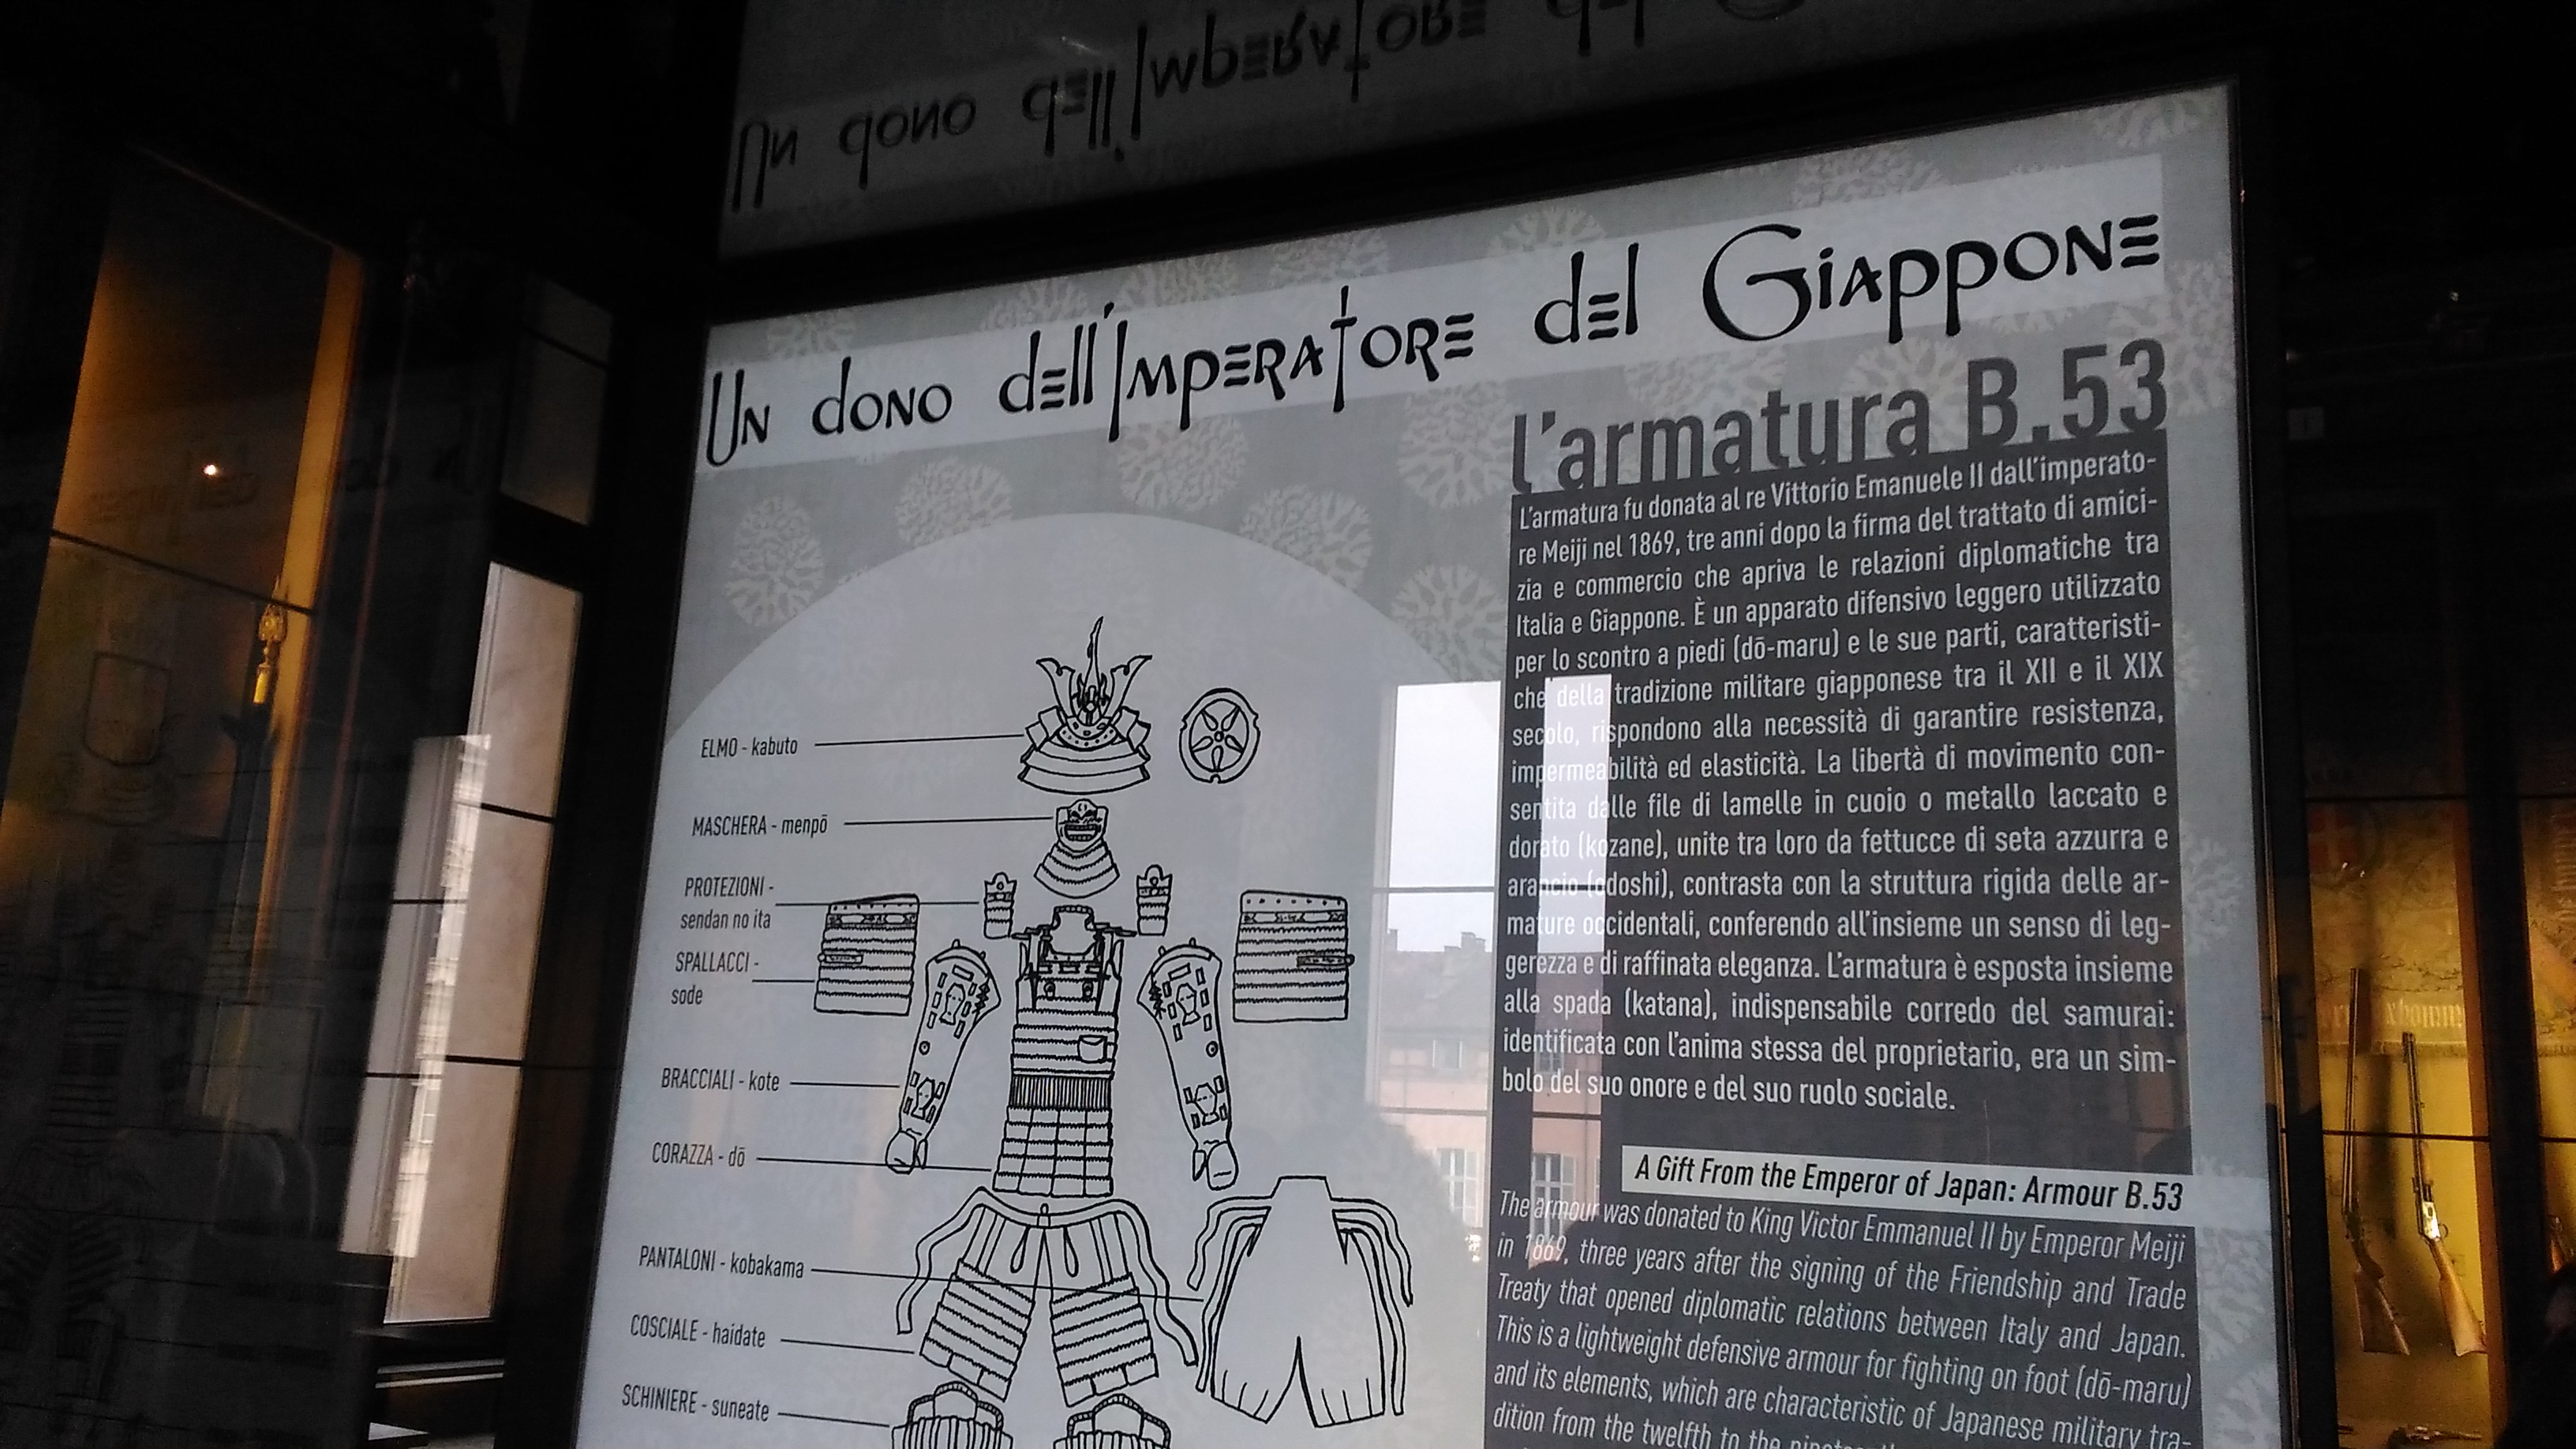 Un dono dell'Imperatore del
Un dono dell'Imperatore del Giappone
l'armatura B.53
L'armatura fu donata al re Vittorio Emanuele II dall'imperato-
re Meiji nel 1869, tre anni dopo la firma del trattato di amici-
zia e commercio che apriva le relazioni diplomatiche tra
Italia e Giappone. È un apparato difensivo leggero utilizzato
per lo scontro a piedi (dō-maru) e le sue parti, caratteristi-
che della tradizione militare giapponese tra il XII e il XIX
secolo, rispondono alla necessità di garantire resistenza,
impermeabilità ed elasticità. La libertà di movimento con-
sentita dalle file di lamelle in cuoio o metallo laccato e
dorato (kozane), unite tra loro da fettucce di seta azzurra e
arancio (odoshi), contrasta con la struttura rigida delle ar-
mature occidentali, conferendo all'insieme un senso di leg-
gerezza e di raffinata eleganza. L'armatura è esposta insieme
alla spada (katana), indispensabile corredo del samurai:
identificata con l'anima stessa del proprietario, era un sim-
bolo del suo onore e del suo ruolo sociale.
A Gift From the Emperor of Japan: Armour B.53
The armour was donated to King Victor Emmanuel II by Emperor Meiji
in 1869, three years after the signing of the Friendship and Trade
Treaty that opened diplomatic relations between Italy and Japan.
This is a lightweight defensive armour for fighting on foot (dō-maru)
and its elements, which are characteristic of Japanese military tra-
dition from the twelfth to the
ELMO - kabuto
MASCHERA - menpō
PROTEZIONI -
sendan no ita
SPALLACCI -
sode
BRACCIALI - kote
CORAZZA - dō
PANTALONI - kobakama
COSCIALE - haidate
SCHINIERE - suneate